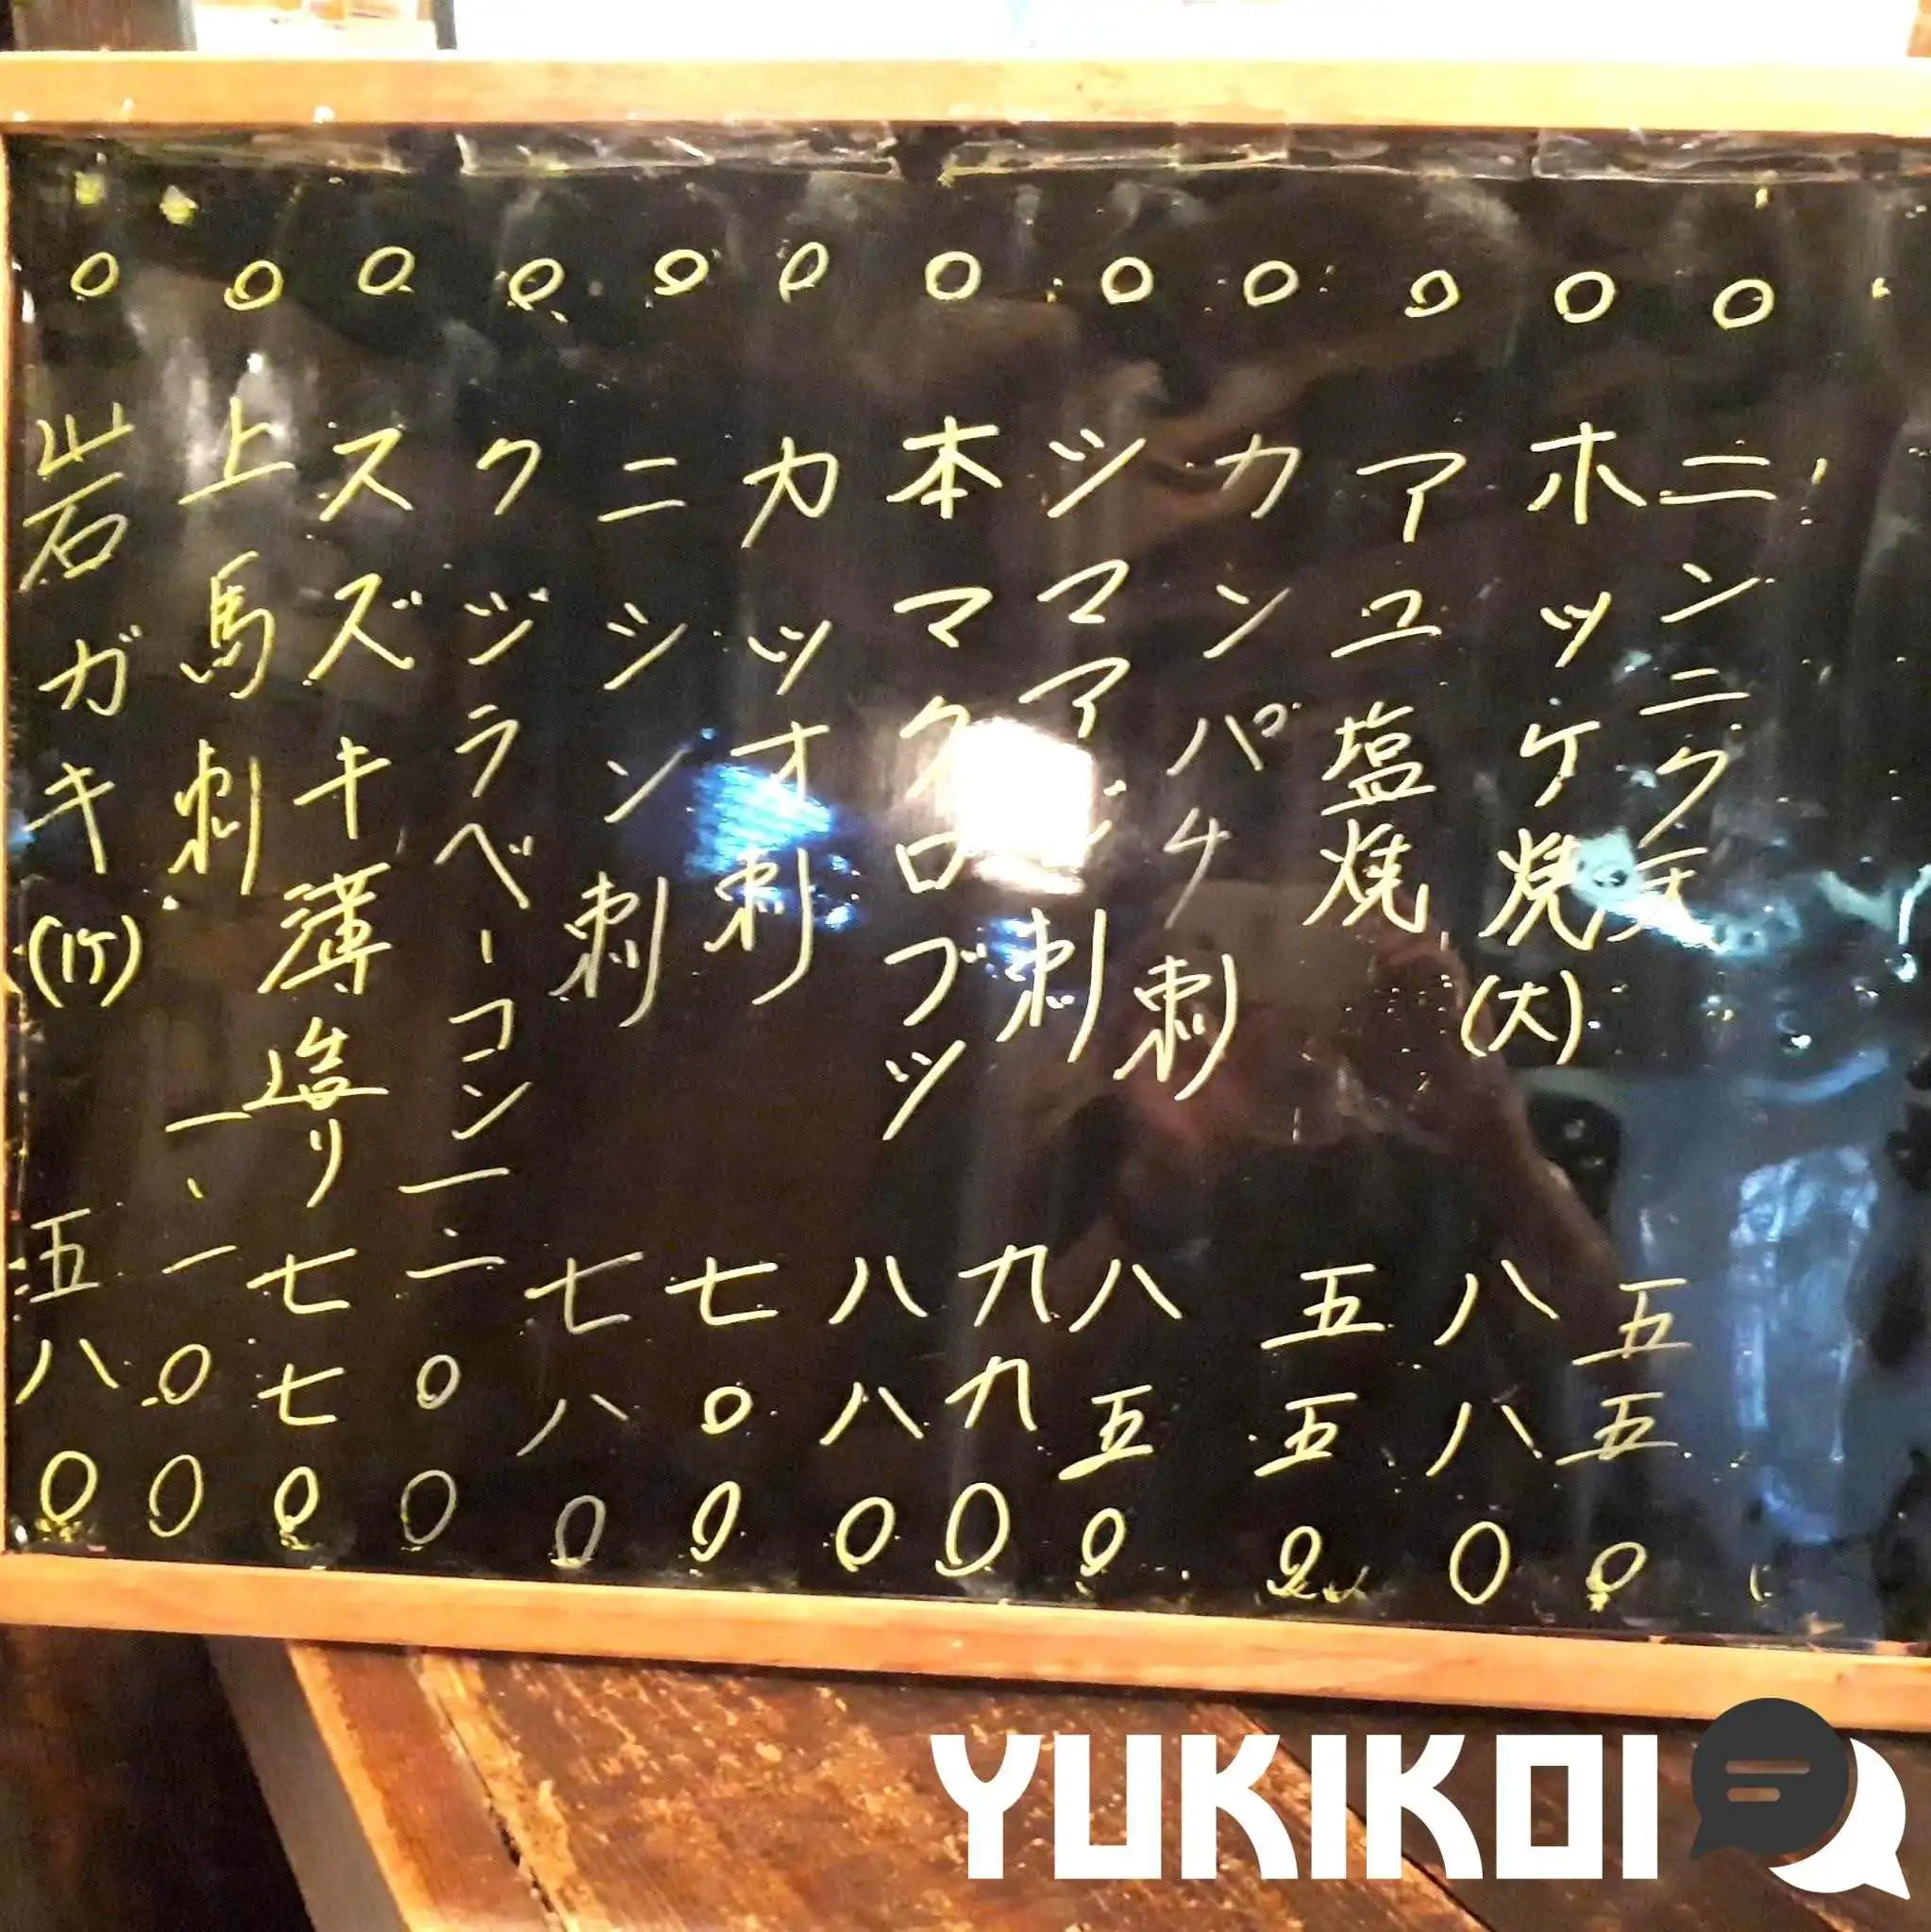 ○ニンニク天 五五〇
○ホッケ焼(大) 八八〇
○アユ塩焼 五五〇
○カンパチ刺 八五〇
○シマアジ刺 九九〇
○本マグロブツ 八八〇
○カツオ刺 七〇〇
○ニシン刺 七八〇
○クジラベーコン 一二〇〇
○スズキ薄造り 七七〇
○上馬刺 一、一〇〇
○岩ガキ(1ケ) 五八〇
YUKIKOI